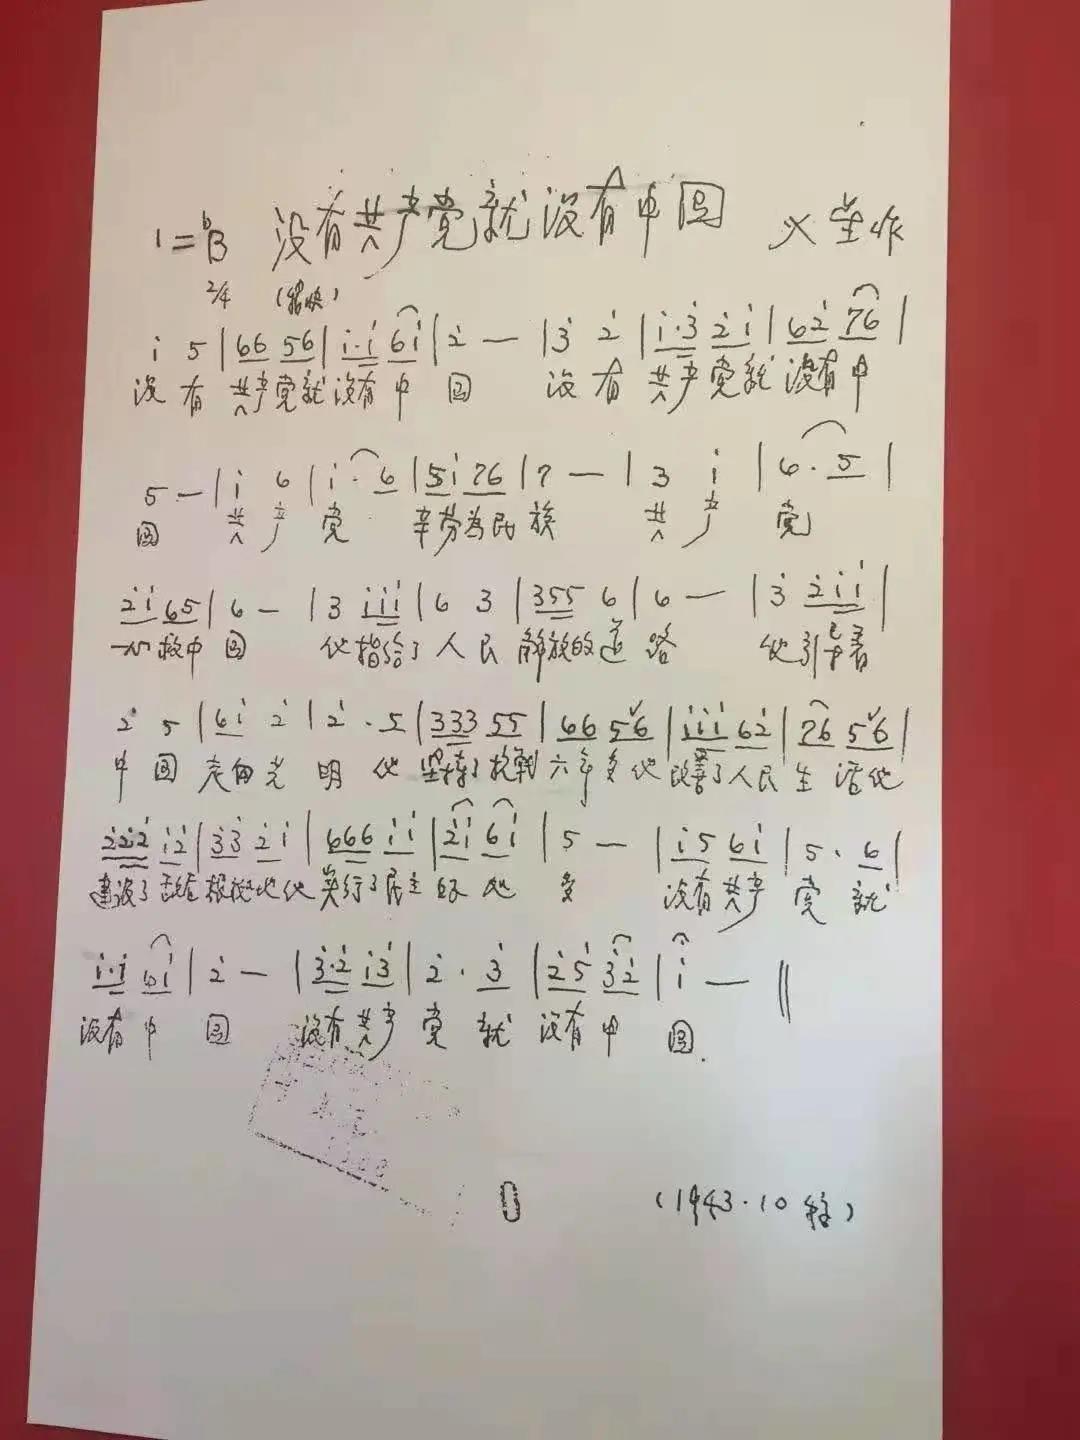 1=♭B 没有共产党就没有中国 火星作
2/4 (稍快)
i 5 | 66 56 | i·i 6i | 2̇ — | 3̇ 2̇ | i·3̇ 2̇i | 62̇ 76 |
没有 共产党就没有中 国 没有 共产党就没有中
5 — | i 6 | i·6 | 5i 76 | 7 — | 3 i | 6·5 |
国 共产 党 辛劳为民族 共产 党
2̇i 65 | 6 — | 3 iii | 6 3 | 355 6 | 6 — | 3̇ 2̇ii |
一心救中国 他指给了人民 解放的道路 他引导着
2̇ 5 | 6i 2̇ | 2̇·5 | 333 55 | 66 56 | iii 62̇ | 76 56 |
中国 走向光 明 他 坚持了抗战六年多他 改善了人民生活他
2̇2̇2̇ i2̇ | 3̇3̇ 2̇i | 666 ii | 2̇i 6i | 5 — | i5 6i | 5·6 |
建设了敌后根据地他 实行了民主好处 多 没有共产 党 就
i·i 6i | 2̇ — | 3̇·2̇ i3̇ | 2̇·3̇ | 2̇5 3̇2̇ | i — ‖
没有中 国 没有共产 党 就 没有中 国.
(1943·10 )